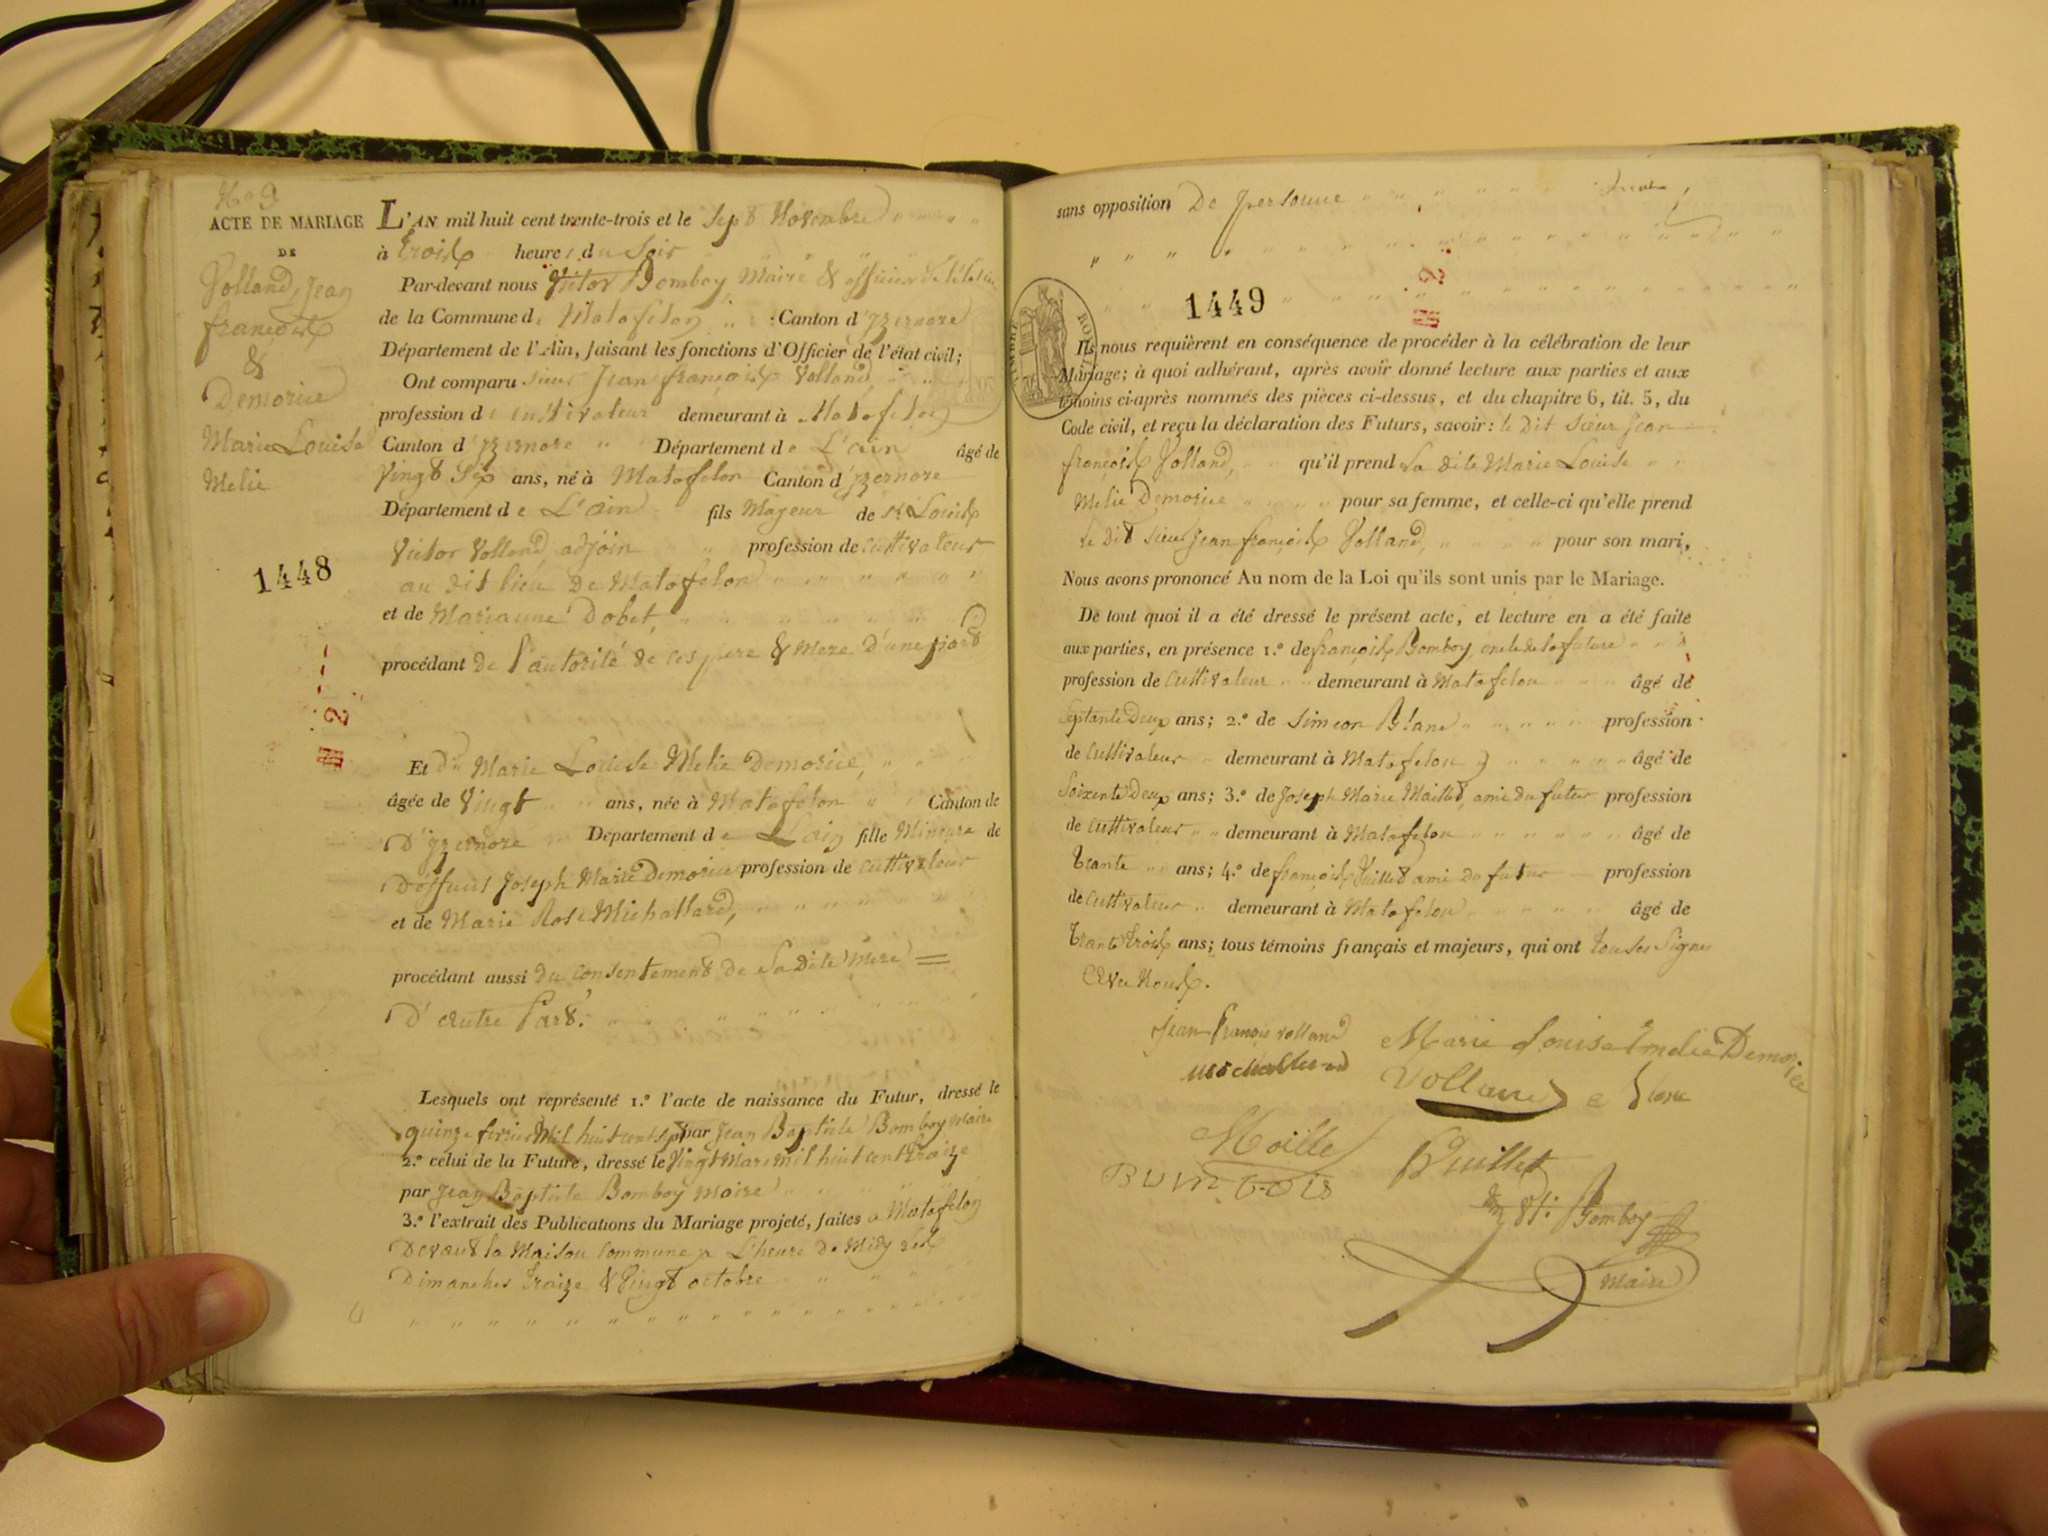 No 9
ACTE DE MARIAGE
DE
Volland, Jean
françois
&
Demorice
Marie Louise
Melie
1448
L'AN mil huit cent trente-trois et le Sept Novembre
à trois heures du Soir
Par-devant nous Victor Bomboy Maire & officier de
de la Commune de Matafelon Canton d'yzernore
Département de l'Ain, faisant les fonctions d'Officier de l'état civil;
Ont comparu sieur Jean françois Volland,
profession de cultivateur demeurant à Matafelon
Canton d'yzernore Département de L'ain âgé de
Vingt Sep ans, né à Matafelon Canton d'yzernore
Département de L'ain fils Majeur de Sr Louis
Victor Volland adjoin profession de cultivateur
au dit lieu de Matafelon
et de Marianne Dobet,
procédant de l'autorité de ces pere & mere D'une part
Et Dlle Marie Louise Melie Demorice,
âgée de Vingt ans, née à Matafelon Canton de
D'yzernore Département de L'ain fille Mineure de
Deffunt Joseph Marie Demorice profession de cultivateur
et de Marie Rose Michallard,
procédant aussi du consentement de Sa dite mere =
D'autre Part.
Lesquels ont représenté 1.º l'acte de naissance du Futur, dressé le
quinze fevrier Mil huit cent sept par Jean Baptiste Bomboy maire
2.º celui de la Future, dressé le Vingt Mars mil huit cent traize
par Jean Baptiste Bomboy maire
3.º l'extrait des Publications du Mariage projeté, faites a Matafelon
Devant la Maison commune a L'heure de Midy les
Dimanches traize & Vingt octobre
sans opposition De personne
1449
TIMBRE ROYAL
Ils nous requièrent en conséquence de procéder à la célébration de leur
Mariage; à quoi adhérant, après avoir donné lecture aux parties et aux
témoins ci-après nommés des pièces ci-dessus, et du chapitre 6, tit. 5, du
Code civil, et reçu la déclaration des Futurs, savoir: le Dit Sieur Jean
françois Volland, qu'il prend La dite Marie Louise
Melie Demorice pour sa femme, et celle-ci qu'elle prend
le Dit Sieur Jean françois Volland, pour son mari,
Nous avons prononcé Au nom de la Loi qu'ils sont unis par le Mariage.
De tout quoi il a été dressé le présent acte, et lecture en a été faite
aux parties, en présence 1.º de françois Bomboy oncle de la future
profession de cultivateur demeurant à Matafelon âgé de
Septante Deux ans; 2.º de Simeon Blanc profession
de cultivateur demeurant à Matafelon âgé de
Soixente Deux ans; 3.º de Joseph Marie Maillet, ami du futur profession
de cultivateur demeurant à Matafelon âgé de
trante ans; 4.º de françois Vuillet ami du futur profession
de cultivateur demeurant à Matafelon âgé de
trante trois ans; tous témoins français et majeurs, qui ont tous Signes
Avec Nous.
Jean François Volland Marie Louise Emelie Demorice
Volland
Vuillet
Bomboy
maire